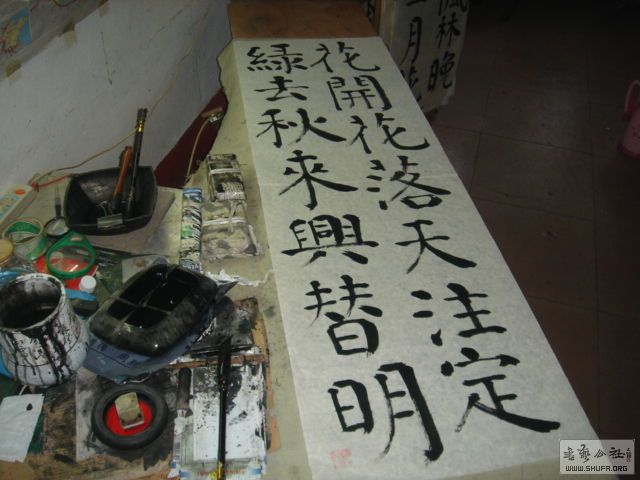 花開花落天注定
綠去秋來興替明
楓林晚
二月花
书艺公社
WWW.SHUFA.ORG